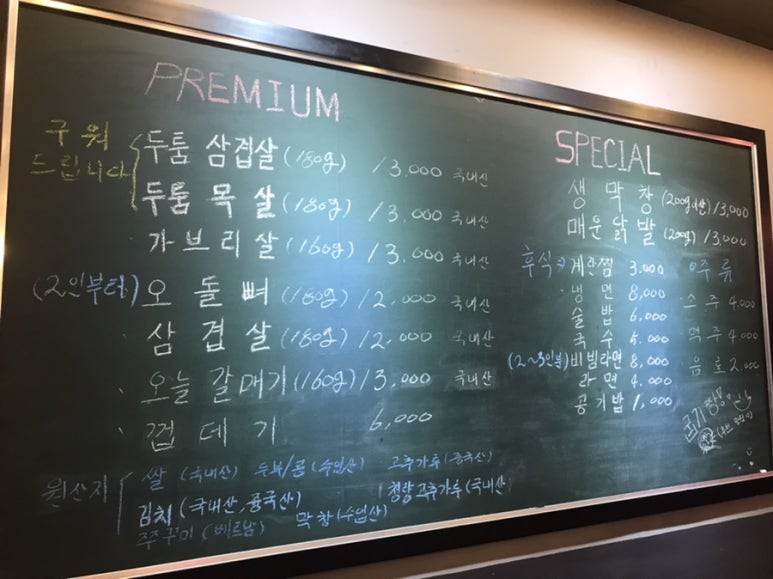 PREMIUM
구워
드립니다
두툼 삼겹살 (180g) 13,000 국내산
두툼 목살 (180g) 13.000 국내산
가브리살 (160g) 13.000 국내산
(2인부터) 오돌뼈 (180g) 12.000 국내산
삼겹살 (180g) 12.000 국내산
오늘갈매기 (160g) 13.000 국내산
껍데기 6,000
원산지 쌀 (국내산) 두부/콩 (수입산) 고추가루 (중국산)
김치 (국내산, 중국산) 청양고추가루 (국내산
쭈꾸미 (베트남) 막창 (수입산)
SPECIAL
생막창 (200g 13,000
매운닭발 (200g) 13,000
후식 계란찜 3.000
냉면 8,000
술밥 6,000
국수 5.000
(2~3인분) 비빔라면 8,000
라면 4.000
공기밥 1,000
주류
소주 4.000
맥주 4000
음료 2.000